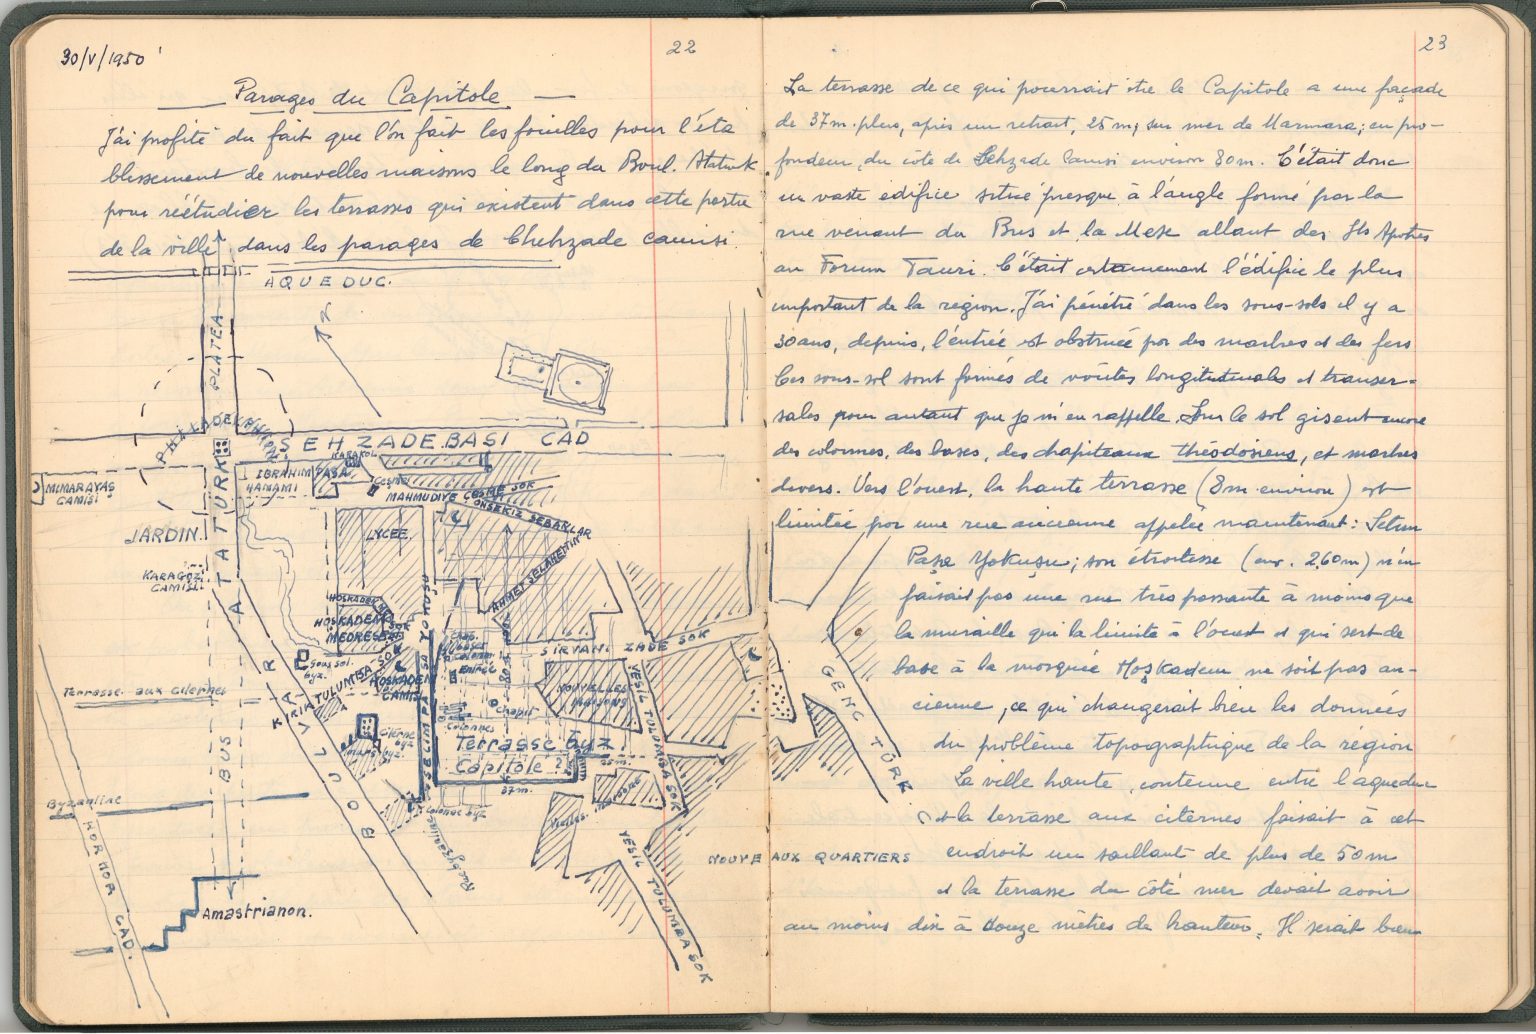 30/V/1950
22
Parages du Capitole
J'ai profité du fait que l'on fait les fouilles pour l'éta
blissement de nouvelles maisons le long du Boul. Ataturk
pour réétudier les terrasses qui existent dans cette partie
de la ville dans les parages de Chehzade camisi.
AQUEDUC.
N
PLATEA
PHILADELPHION
SEHZADEBASI CAD
KARAKOL
IBRAHIM PAŞA
HAMAMI
Cesme
MAHMUDIYE CESME SOK
ONSEKIZ SEBAKLAR
MIMARAYAŞ
CAMISI
ATATURK
LYCEE
JARDIN
AHMET SELAHETIN
KARAGÖZ
CAMISI
HOSKADEM
HOSKADEM
MEDRESE
SOK
YOKUŞU
SIRVANI ZADE SOK
Sous sol.
byz.
Entrée
HOSKADEM
CAMISI
KIRIK TULUMBA SOK
NOUVELLES
MAISONS
YESIL TULUMBA SOK
Terrasse aux citernes
Chapit
Colonnes
Citerne
byz
murs
byz
SELIM PAŞA
Terrasse byz.
Capitole ?
25 m.
37 m.
BOULVAR
BUS
Byzantine
Colonne byz
Rue byzantine
Vieilles
YESIL TULUMBA SOK
HORHOR CAD.
NOUVEAUX QUARTIERS
Amastrianon.
GENC TÜRK
23
La terrasse de ce qui pourrait être le Capitole a une façade
de 37m. plus, après un retrait, 25 m; sur mer de Marmara; en pro-
fondeur, du côté de Sehzade camisi environ 80m. C'était donc
un vaste édifice situé presque à l'angle formé par la
rue venant du Bus et la Mese allant des Sts Apotres
au Forum Tauri. C'était certainement l'édifice le plus
important de la region. J'ai pénétré dans les sous-sols il y a
30 ans, depuis, l'entrée est obstruée par des marbres et des fers
Ces sous-sol sont formés de voûtes longitudinales et transer-
sales pour autant que je m'en rappelle. Sur le sol gisent encore
des colonnes, des bases, des chapiteaux théodosiens, et marbres
divers. Vers l'ouest, la haute terrasse (8m environ) est
limitée par une rue ancienne appelée maintenant: Selim
Paşa Yokuşu; son étroitesse (env. 2,60m) n'en
faisait pas une rue très passante à moins que
la muraille qui la limite à l'ouest et qui sert de
base à la mosquée Hoşkadem ne soit pas an-
cienne, ce qui changerait bien les données
du problème topographique de la région
La ville haute, contenue entre l'aqueduc
et la terrasse aux citernes faisait à cet
endroit un saillant de plus de 50m
et la terrasse du côté mer devait avoir
au moins dix à douze mètres de hauteur. Il serait bien